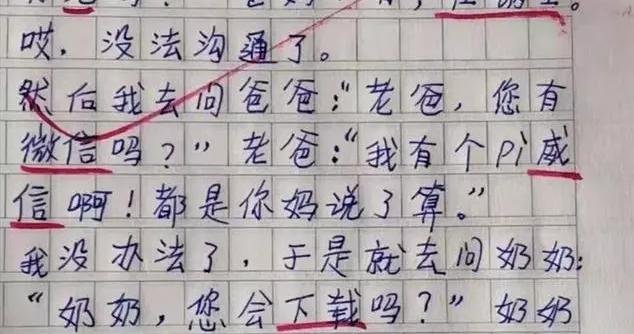 哎，没法沟通了。
然后我去问爸爸：“老爸，您有
微信吗？”老爸：“我有个pì威
信啊！都是你妈说了算。”
我没办法了，于是就去问奶奶：
“奶奶，您会下载吗？”奶奶